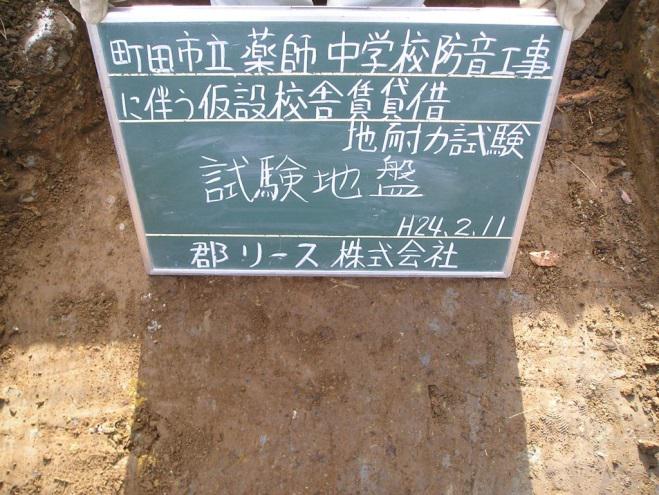 町田市立薬師中学校防音工事
に伴う仮設校舎賃貸借
地耐力試験
試験地盤
H24.2.11
郡リース株式会社